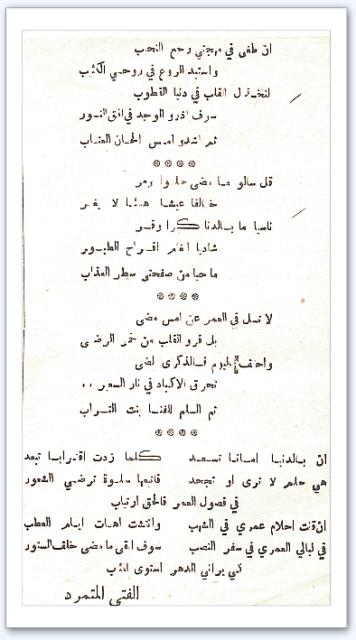 ان طغى في مهجتي رجع النحيب
واستبد الروع في روحي الكئيب
القلب في دنيا القطوب
سوف اذرو الوجد في افق النور
ثم اشدو امس الحان العذاب
قل سالو ما مضى حلوا ومر
خالقا عيشا هنيئا لا يغر
ناسيا ما بالدنا كرا وفر
شاديا انغام افراح الطيور
ماحيا من صفحتي سطر العذاب
لا تسل في العمر عن امس مضى
بل قرو القلب من خمر الرضى
اليوم فالذكرى لضى
تحرق الاكباد في نار السعير ..
ثم السلم للفنا بنت التراب
ان بالدنيا امانا تسعد
كلما زدت اقترابا تبعد
هي حلم لا ترى او تجحد
فاتبعها سلوة ترضي الشعور
في فصول العمر فالحق ارتياب
ان قنت احلام عمري في الشهب
وانتشت اهات ايام العطب
في ليالي العمري في سفر النصب
سوف القى ما مضى خلف الستور
كي يراني الدهر استوى
الفتى المتمرد